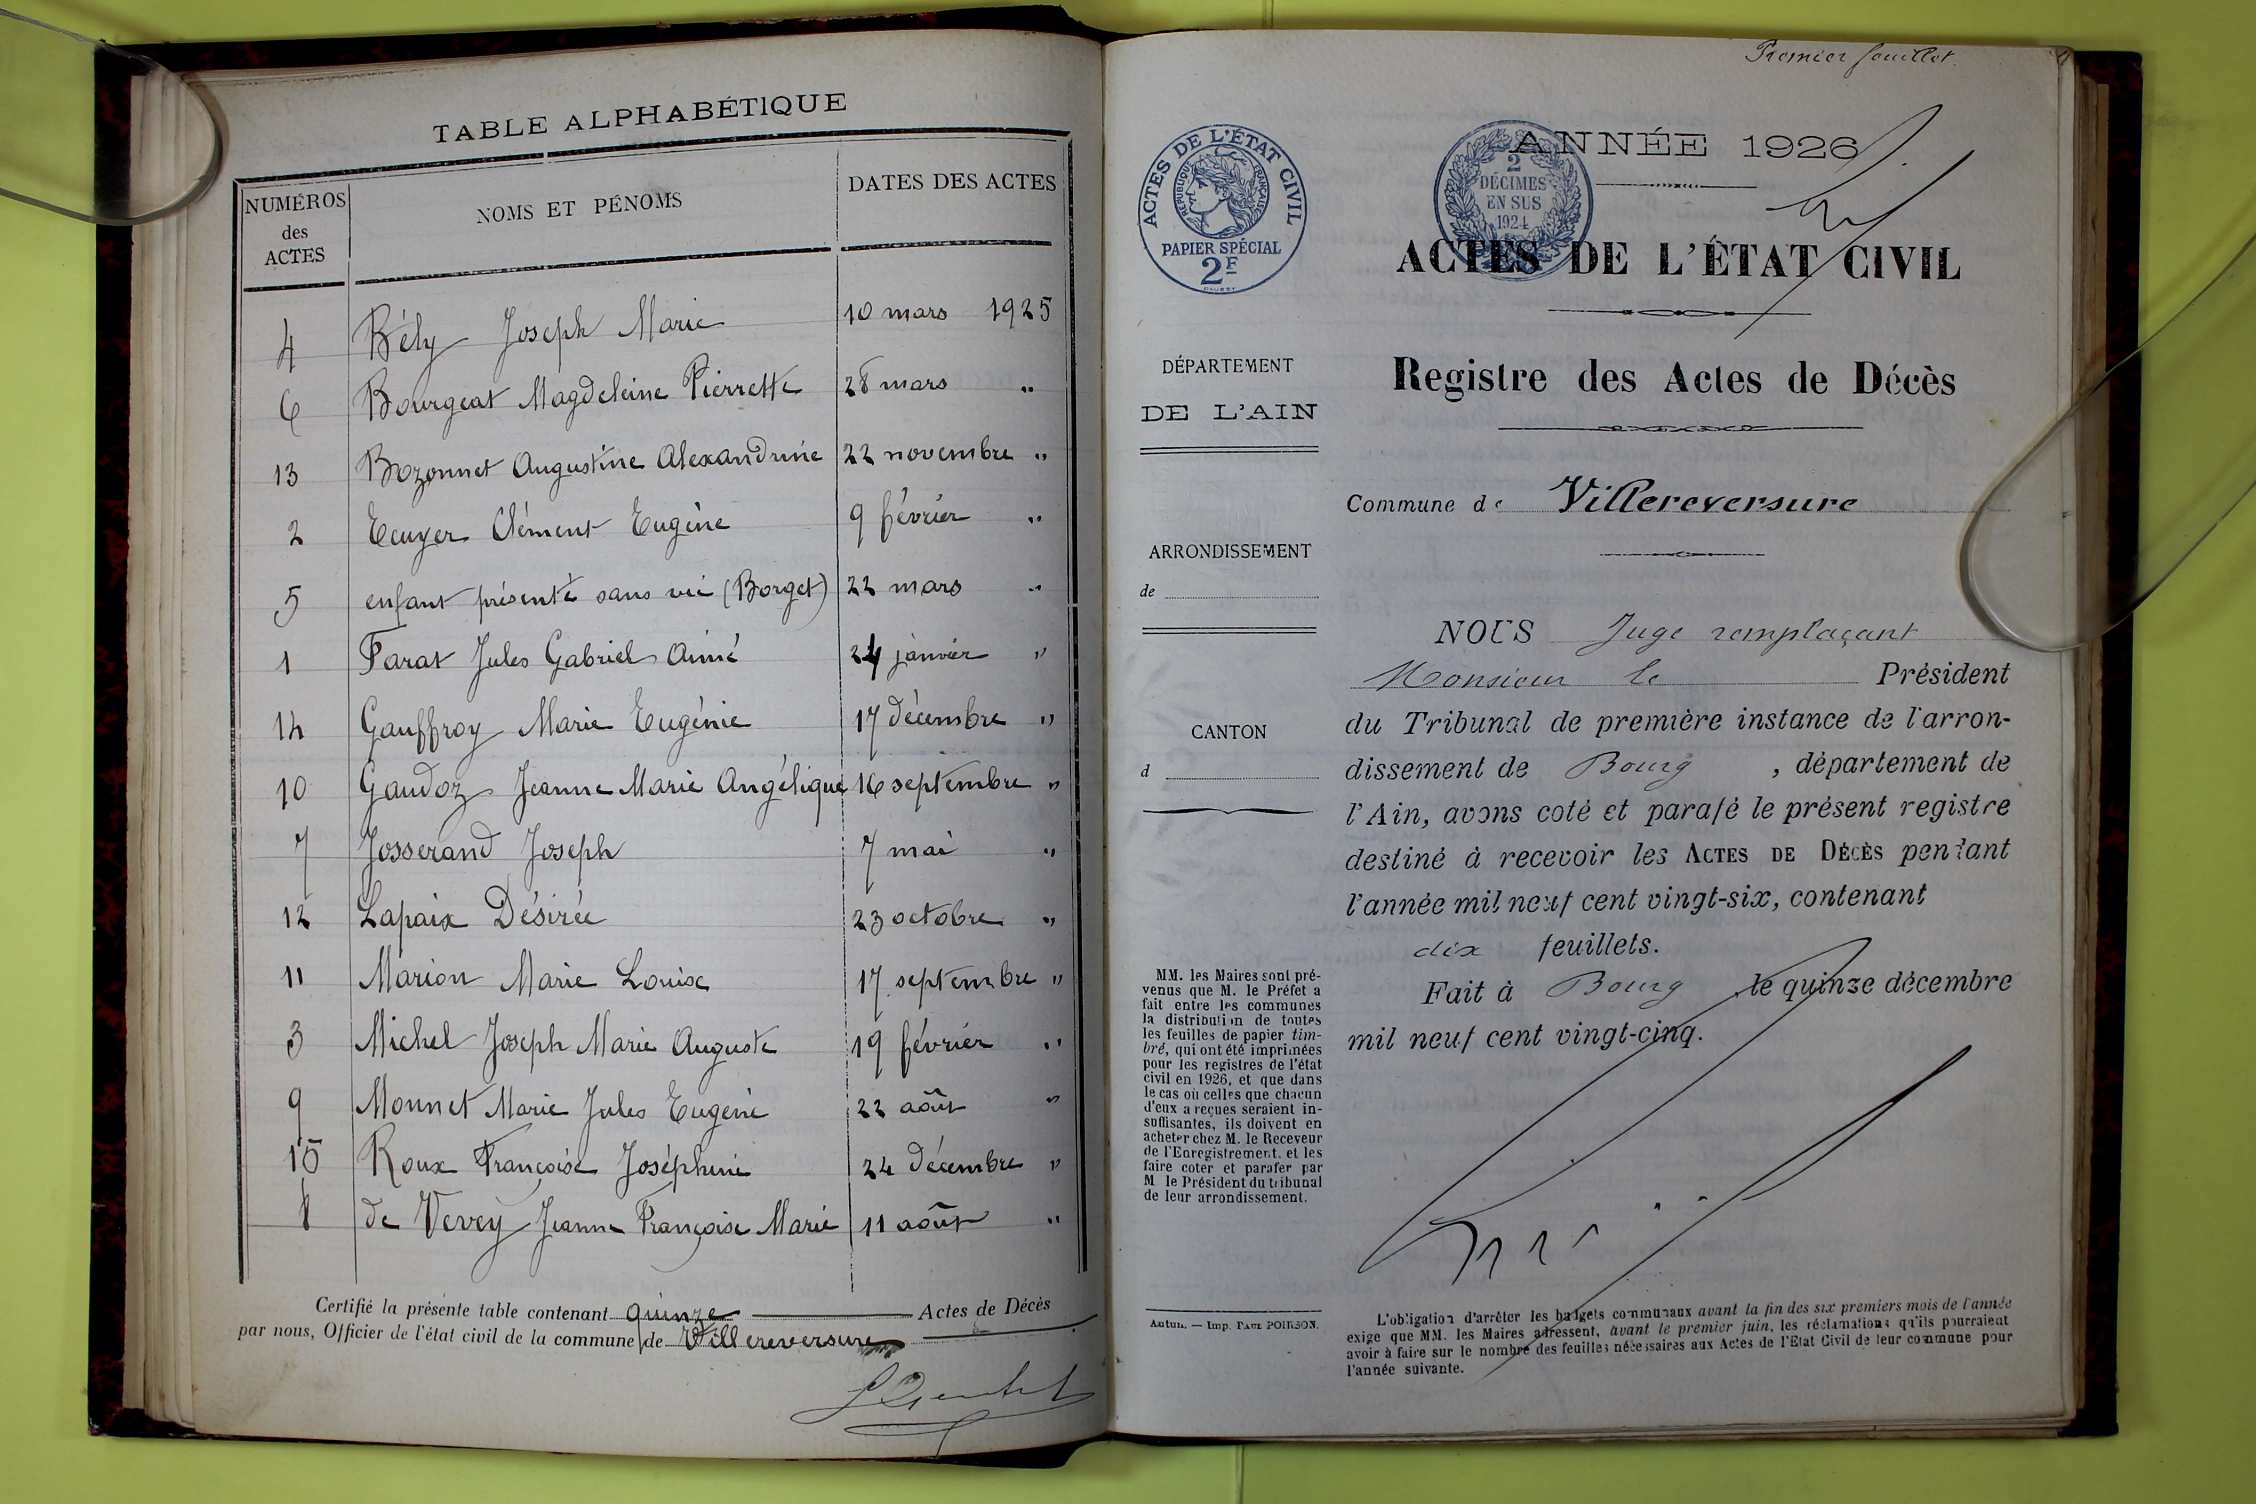 TABLE ALPHABÉTIQUE
NUMÉROS
des
ACTES
NOMS ET PÉNOMS
DATES DES ACTES
4 Bély Joseph Marie 10 mars 1925
6 Bourgeat Magdeleine Pierrette 28 mars "
13 Bozonnet Augustine Alexandrine 22 novembre "
2 Ecuyer Clément Eugène 9 février "
5 enfant présenté sans vie (Borget) 22 mars "
1 Farat Jules Gabriel Aimé 24 janvier "
14 Gauffroy Marie Eugénie 17 décembre "
10 Gaudoz Jeanne Marie Angélique 16 septembre "
7 Josserand Joseph 7 mai "
12 Lapaix Désirée 23 octobre "
11 Marion Marie Louise 17 septembre "
3 Michel Joseph Marie Auguste 19 février "
9 Monnet Marie Jules Eugène 22 août "
15 Roux Françoise Joséphine 24 décembre "
8 de Vevey Jeanne Françoise Marie 11 août "
Certifié la présente table contenant quinze Actes de Décès
par nous, Officier de l'état civil de la commune de Villereversure
Premier feuillet.
ACTES DE L'ÉTAT CIVIL
RÉPUBLIQUE FRANÇAISE
PAPIER SPÉCIAL
2F
2
DÉCIMES
EN SUS
1924
ANNÉE 1926
ACTES DE L'ÉTAT CIVIL
Registre des Actes de Décès
DÉPARTEMENT
DE L'AIN
ARRONDISSEMENT
de
CANTON
d
MM. les Maires sont pré-
venus que M. le Préfet a
fait entre les communes
la distribution de toutes
les feuilles de papier tim-
bré, qui ont été imprimées
pour les registres de l'état
civil en 1926, et que dans
le cas où celles que chacun
d'eux a reçues seraient in-
suffisantes, ils doivent en
acheter chez M. le Receveur
de l'Enregistrement, et les
faire coter et parafer par
M le Président du tribunal
de leur arrondissement.
Autun. — Imp. PAUL POIRSON.
Commune de Villereversure
NOUS Juge remplaçant
Monsieur le Président
du Tribunal de première instance de l'arron-
dissement de Bourg, département de
l'Ain, avons coté et parafé le présent registre
destiné à recevoir les ACTES DE DÉCÈS pendant
l'année mil neuf cent vingt-six, contenant
dix feuillets.
Fait à Bourg, le quinze décembre
mil neuf cent vingt-cinq.
L'obligation d'arrêter les budgets communaux avant la fin des six premiers mois de l'année
exige que MM. les Maires adressent, avant le premier juin, les réclamations qu'ils pourraient
avoir à faire sur le nombre des feuilles nécessaires aux Actes de l'Etat Civil de leur commune pour
l'année suivante.